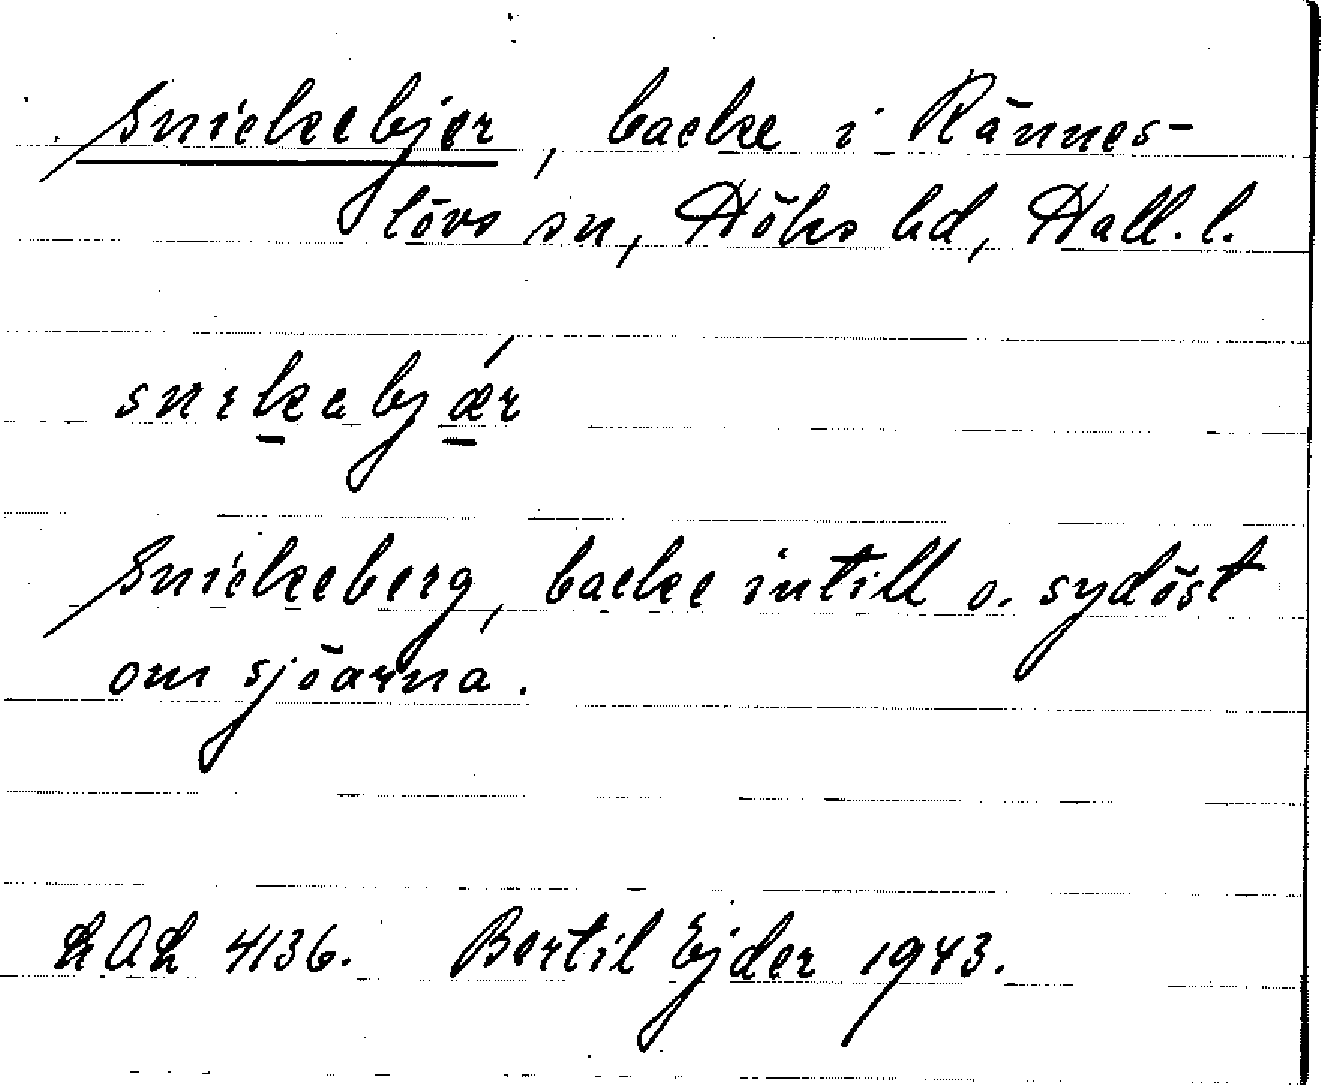 Snickebjer, backe i Rännes-
lövs sn, Höks hd, Hall. l.
snekabjǽr
Snickeberg, backe intill o. sydöst
om sjöarna.
LAL 4136. Bertil Ejder 1943.